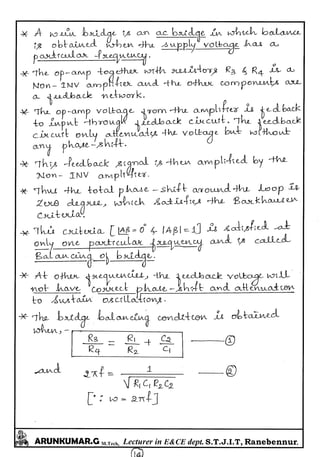 * A wein bridge is an ac bridge in which balance
is obtained when the supply voltage has a
particular frequency.
* The op-amp together with resistors R3 & R4 is a
Non-INV amplifier and the other components are
a feedback network.
* The op-amp voltage from the amplifier is fedback
to input through feedback circuit. The feedback
circuit only attenuates the voltage but without
any phase-shift.
* This feedback signal is then amplified by the
Non-INV amplifier.
* Thus the total phase-shift around the loop is
zero degree, which satisfies the Barkhausen
Criteria.
* This criteria [∠Aβ = 0° & |Aβ| = 1] is satisfied at
only one particular frequency and is called
Balancing of bridge.
* At other frequencies, the feedback voltage will
not have correct phase-shift and attenuation
to sustain oscillations.
* The bridge balancing condition is obtained
when,-
R3/R4 = R1/R2 + C2/C1 — ①
and 2πf = 1/√R1C1R2C2 — ②
[∵ ω = 2πf]
ARUNKUMAR.G M.Tech, Lecturer in E&CE dept. S.T.J.I.T, Ranebennur.